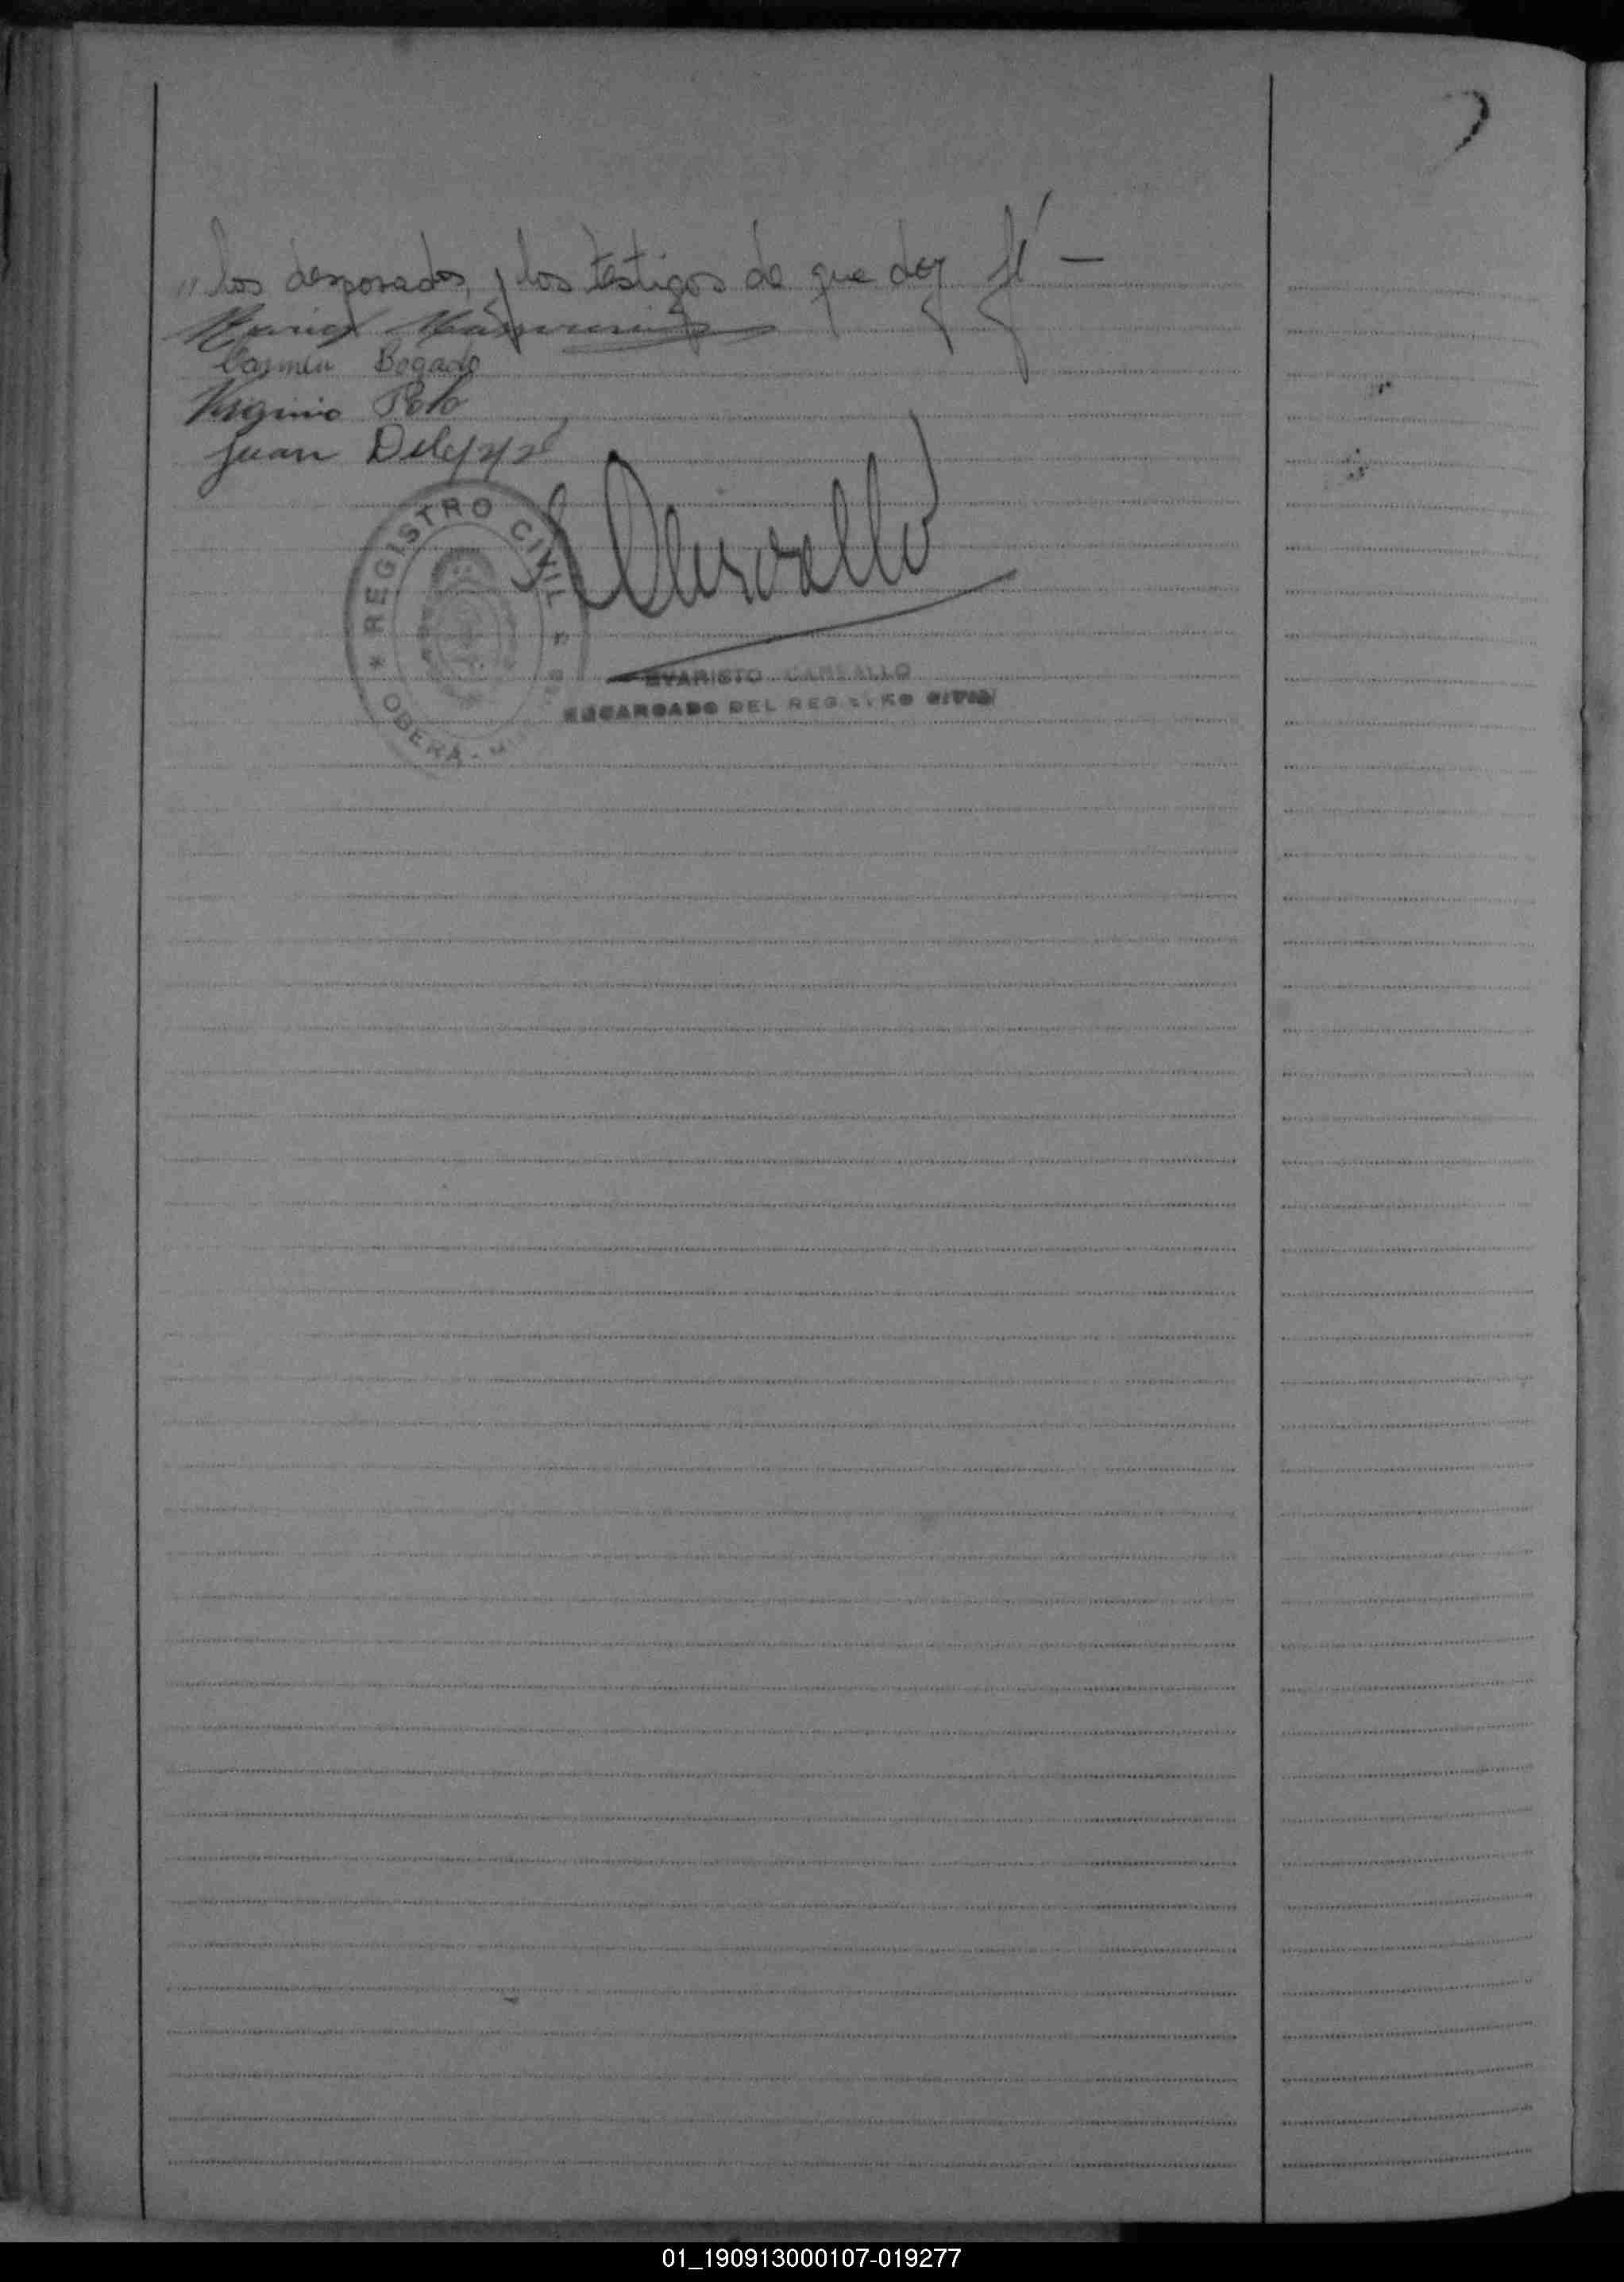 " los desposados, y los testigos de que doy fé —
Carmen Bogado
Virginio Polo
Juan
Carvallo
* REGISTRO CIVIL *
OBERA - 
EVARISTO CARVALLO
ENCARGADO DEL REGISTRO CIVIL
01_190913000107-019277